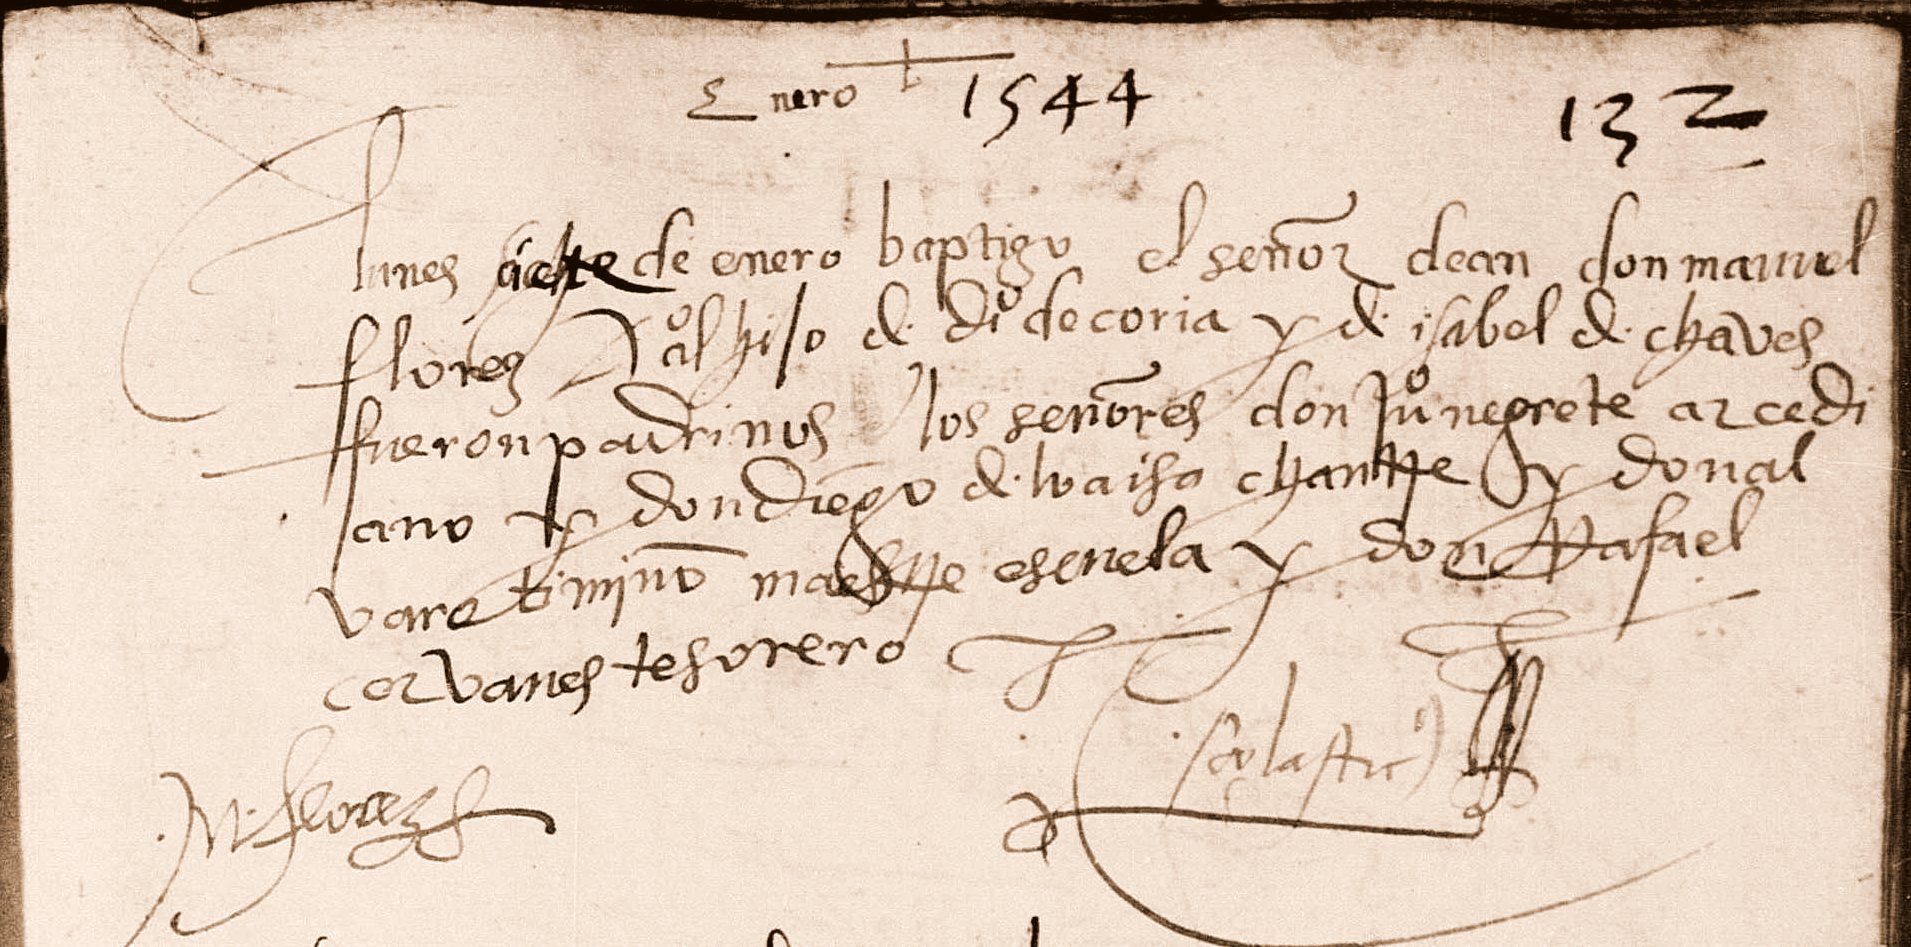 Enero 1544 132
lunes siete de enero baptizo el señor dean don manuel
florez a al hijo de diº de coria y de isabel de chaves
fueron padrinos los señores don juº negrete arcedi
ano y don diego de loaisa chantre y don al
varo timjnº maestre escuela y don Rafael
cervanes tesorero
M. florez scolastic